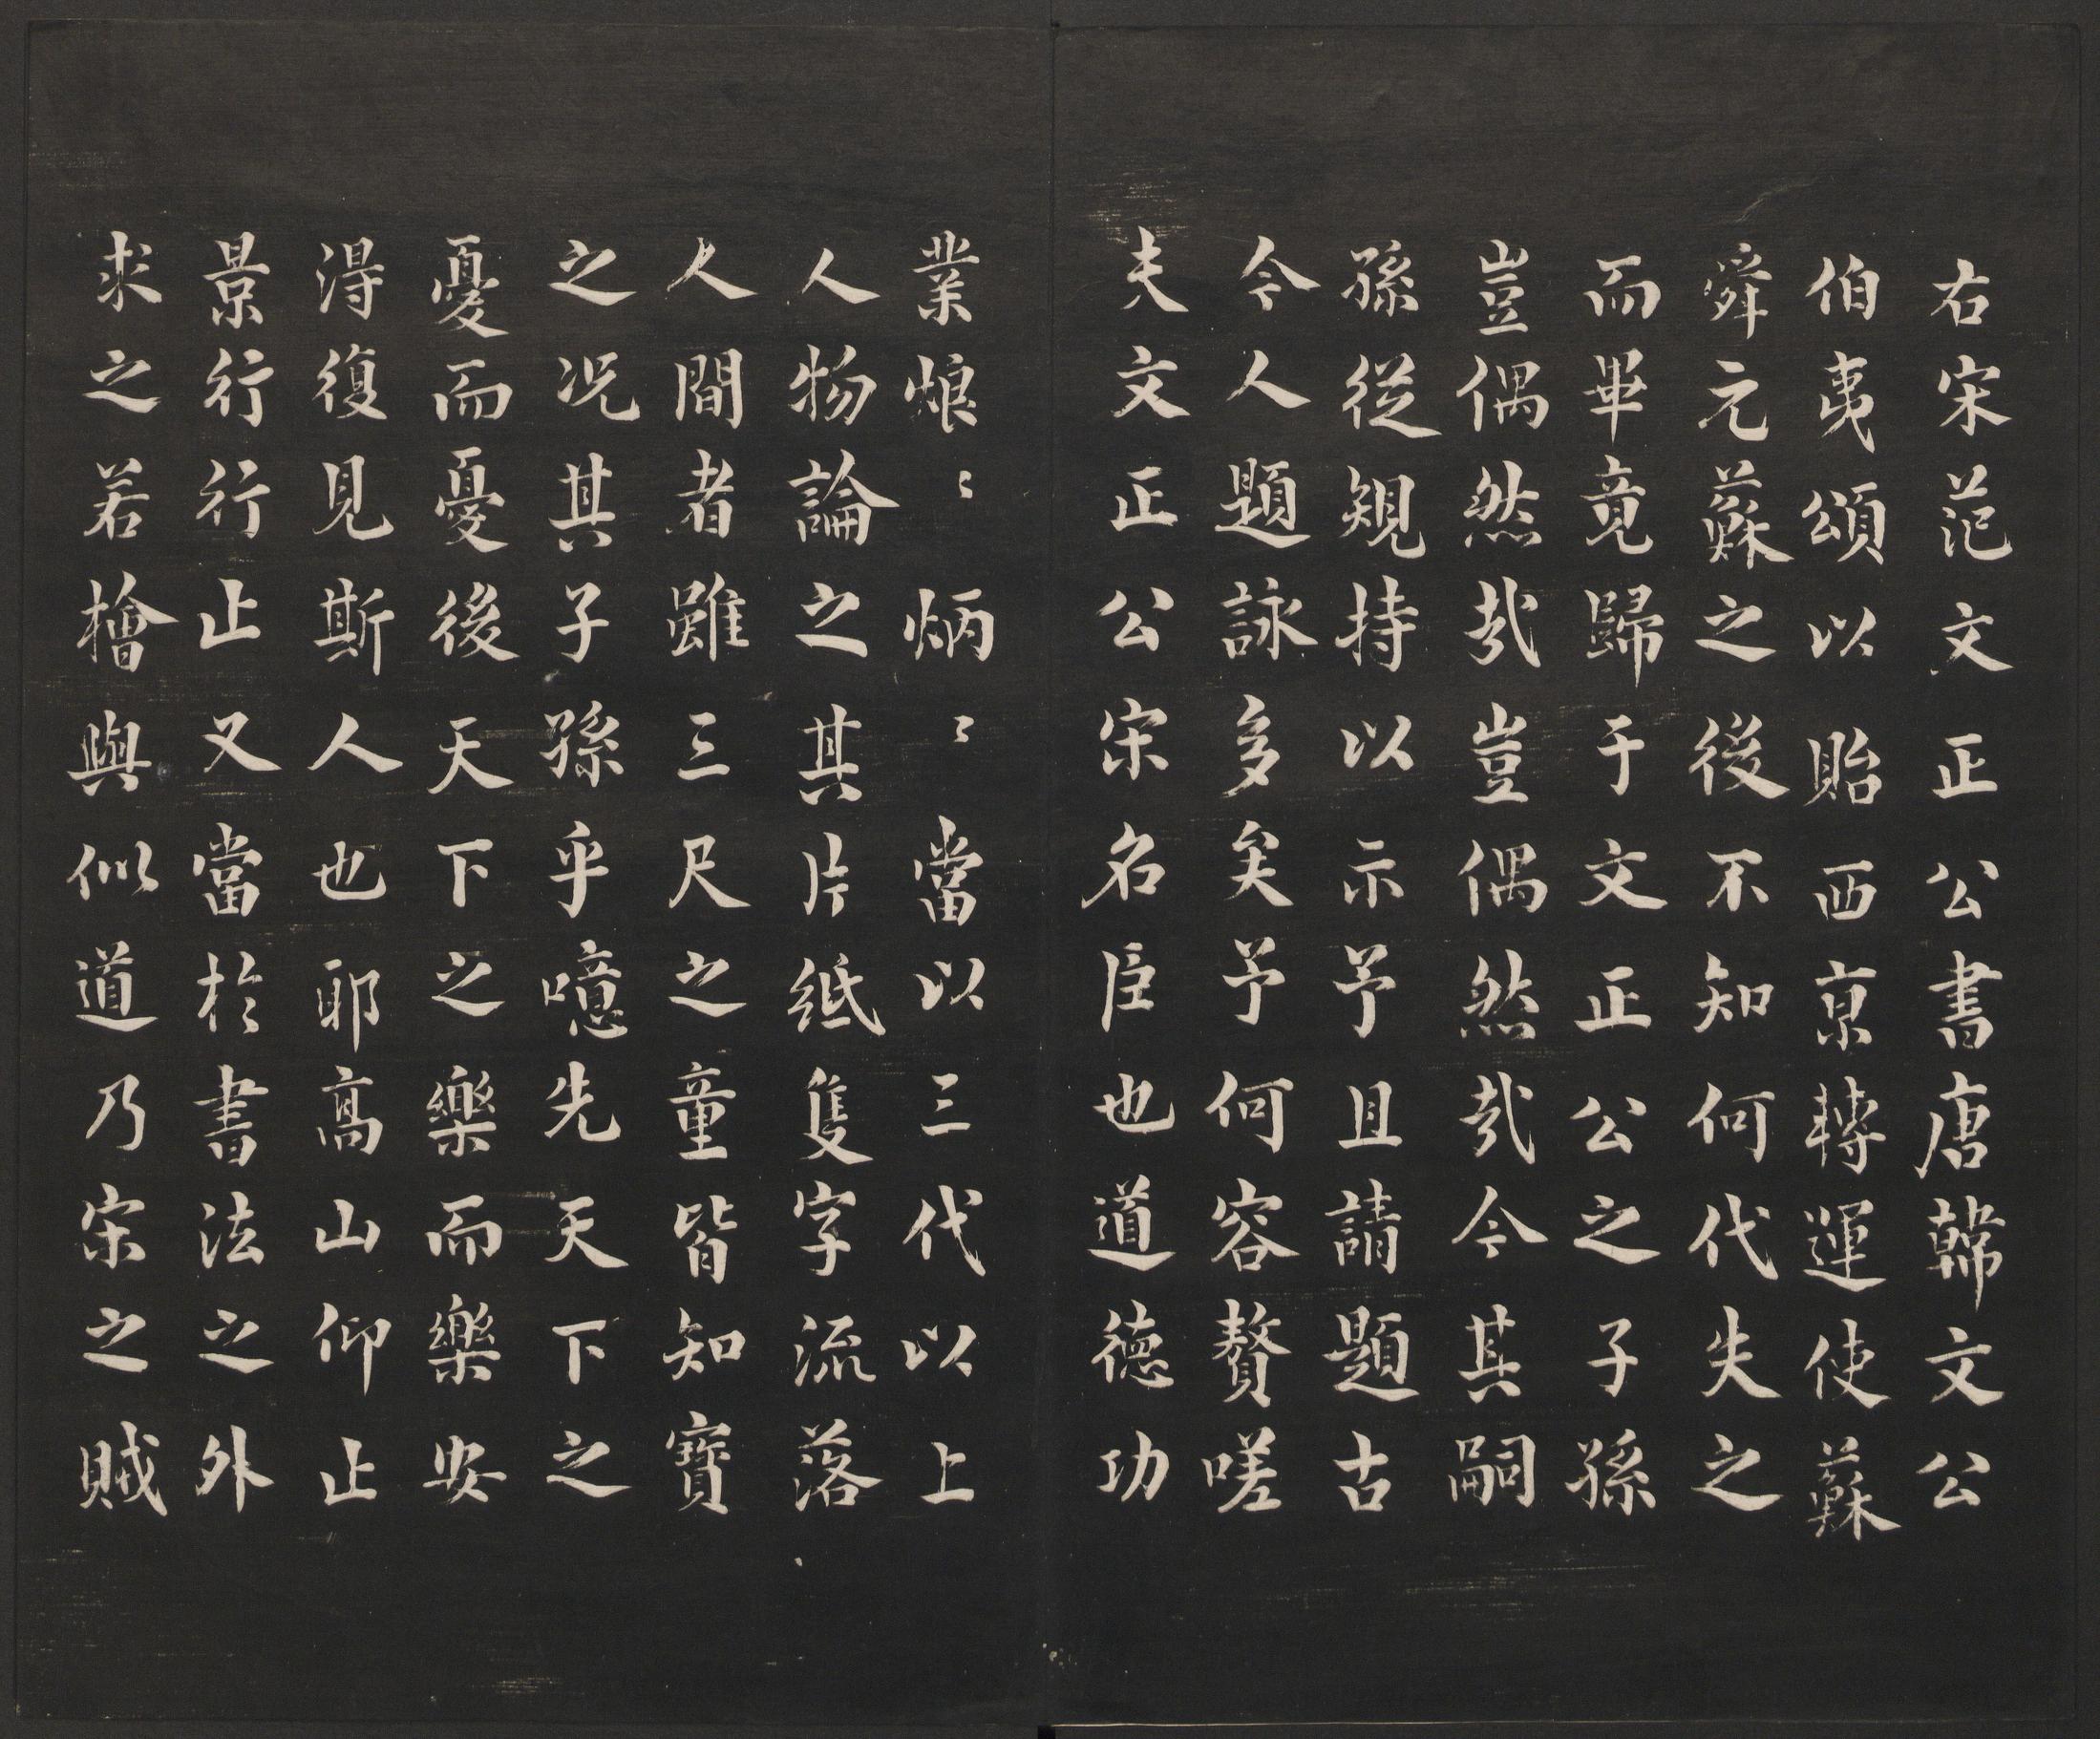 右宋范文正公書唐韓文公
伯夷頌以貽西京轉運使蘇
舜元蘇之後不知何代失之
而畢竟歸于文正公之子孫
豈偶然㢤豈偶然㢤今其嗣
孫從規持以示予且請題古
今人題詠多矣予何容贅嗟
夫文正公宋名臣也道德功
業烺〻炳〻當以三代以上
人物論之其片紙隻字流落
人間者雖三尺之童皆知寶
之况其子孫乎噫先天下之
憂而憂後天下之樂而樂安
得復見斯人也耶高山仰止
景行行止又當於書法之外
求之若檜與似道乃宋之賊